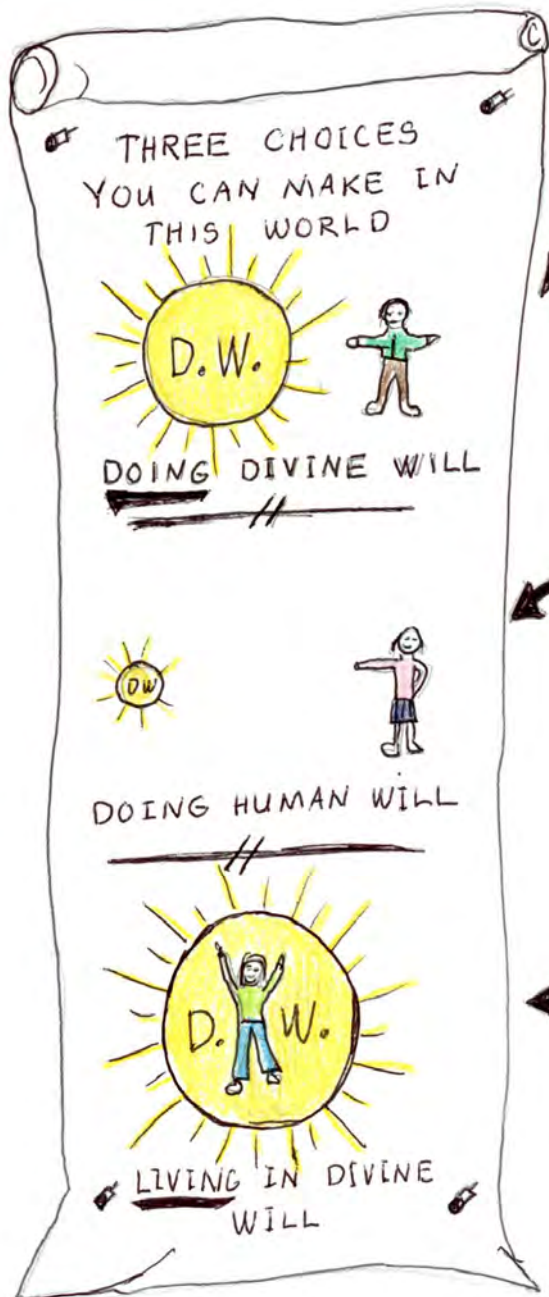 THREE CHOICES
YOU CAN MAKE IN
THIS WORLD
D.W.
DOING DIVINE WILL
DW
DOING HUMAN WILL
D. W.
LIVING IN DIVINE
WILL